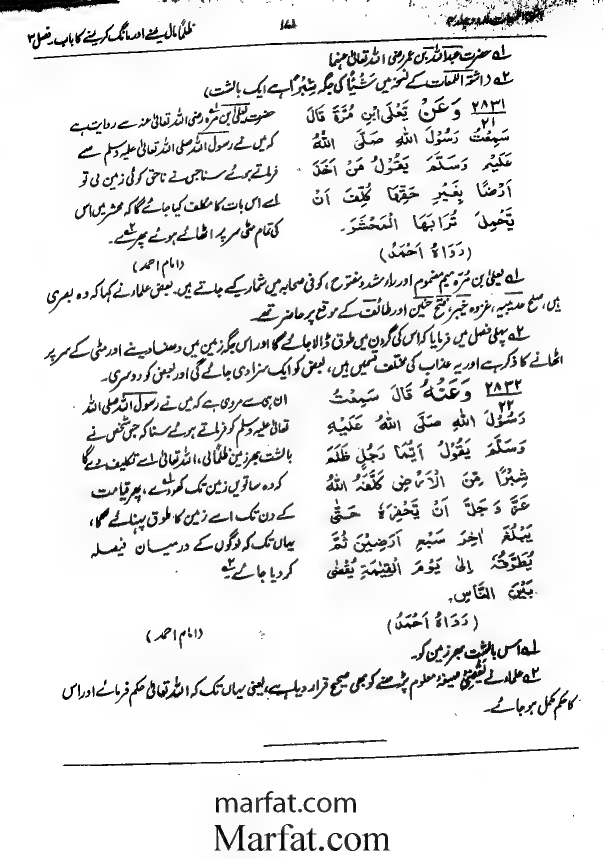 ظلماً مال لینے اور مانگ کر لینے کا باب۔ فصل ۳
۱ حضرت عبداللہ بن عمر رضی اللہ تعالیٰ عنہما
۲ (اشعۃ اللمعات کے نسخہ میں شَیْئًا کی جگہ شِبْرًا ہے ایک بالشت)
۲۸۳۱ وَعَنْ يَعْلَى ابْنِ مُرَّةَ قَالَ
۲۱
سَمِعْتُ رَسُوْلَ اللهِ صَلَّى اللهُ
عَلَيْهِ وَسَلَّمَ يَقُوْلُ مَنْ اَخَذَ
اَرْضًا بِغَيْرِ حَقِّهَا كُلِّفَ اَنْ
يَّحْمِلَ تُرَابَهَا الْمَحْشَرَ۔
(رَوَاهُ اَحْمَدُ)
حضرت یعلیٰ بن مرہ رضی اللہ تعالیٰ عنہ سے روایت ہے
کہ میں نے رسول اللہ صلی اللہ تعالیٰ علیہ وسلم سے
فرماتے ہوئے سنا جس نے ناحق کوئی زمین لی تو
اسے اس بات کا مکلف کیا جائے گا کہ محشر میں اس
کی تمام مٹی سر پر اٹھائے ہوئے پھرے۔
(امام احمد)
۱ یعلیٰ ابن مُرّہ میم مضموم اور راء مشدد مفتوح، کوفی صحابہ میں شمار کیے جاتے ہیں۔ بعض علماء نے کہا کہ وہ بصری
ہیں، صلح حدیبیہ، غزوہ خیبر، فتح حنین اور طائف کے موقع پر حاضر تھے۔
۲ پہلی فصل میں فرمایا کہ اس کی گردن میں طوق ڈالا جائے گا اور اس جگہ زمین میں دھنسا دینے اور مٹی کے سر پر
اٹھانے کا ذکر ہے اور یہ عذاب کی مختلف قسمیں ہیں، بعض کو ایک سزا دی جائے گی اور بعض کو دوسری۔
۲۸۳۲ وَعَنْهُ قَالَ سَمِعْتُ
۲۲
رَسُوْلَ اللهِ صَلَّى اللهُ عَلَيْهِ
وَسَلَّمَ يَقُوْلُ اَيُّمَا رَجُلٍ ظَلَمَ
شِبْرًا مِّنَ الْاَرْضِ كَلَّفَهُ اللهُ
عَزَّ وَجَلَّ اَنْ يَّحْفِرَهٗ حَتّٰى
يَبْلُغَ اٰخِرَ سَبْعِ اَرَضِيْنَ ثُمَّ
يُطَوَّقَهٗ اِلٰى يَوْمِ الْقِيٰمَةِ يُقْضٰى
بَيْنَ النَّاسِ۔
(رَوَاهُ اَحْمَدُ)
ان ہی سے مروی ہے کہ میں نے رسول اللہ صلی اللہ
تعالیٰ علیہ وسلم کو فرماتے ہوئے سنا کہ جس شخص نے
بالشت بھر زمین ظلماً لی، اللہ تعالیٰ اسے تکلیف دے گا
کہ وہ ساتویں زمین تک کھودے، پھر قیامت
کے دن تک اسے زمین کا طوق پہنائے گا،
یہاں تک کہ لوگوں کے درمیان فیصلہ
کر دیا جائے۔
(امام احمد)
۱ اس بالشت بھر زمین کو۔
۲ علماء نے یَقْضِیَ صیغہ معلوم پڑھنے کو بھی صحیح قرار دیا ہے، یعنی یہاں تک کہ اللہ تعالیٰ حکم فرمائے اور اس
کا حکم مکمل ہو جائے۔
marfat.com
Marfat.com